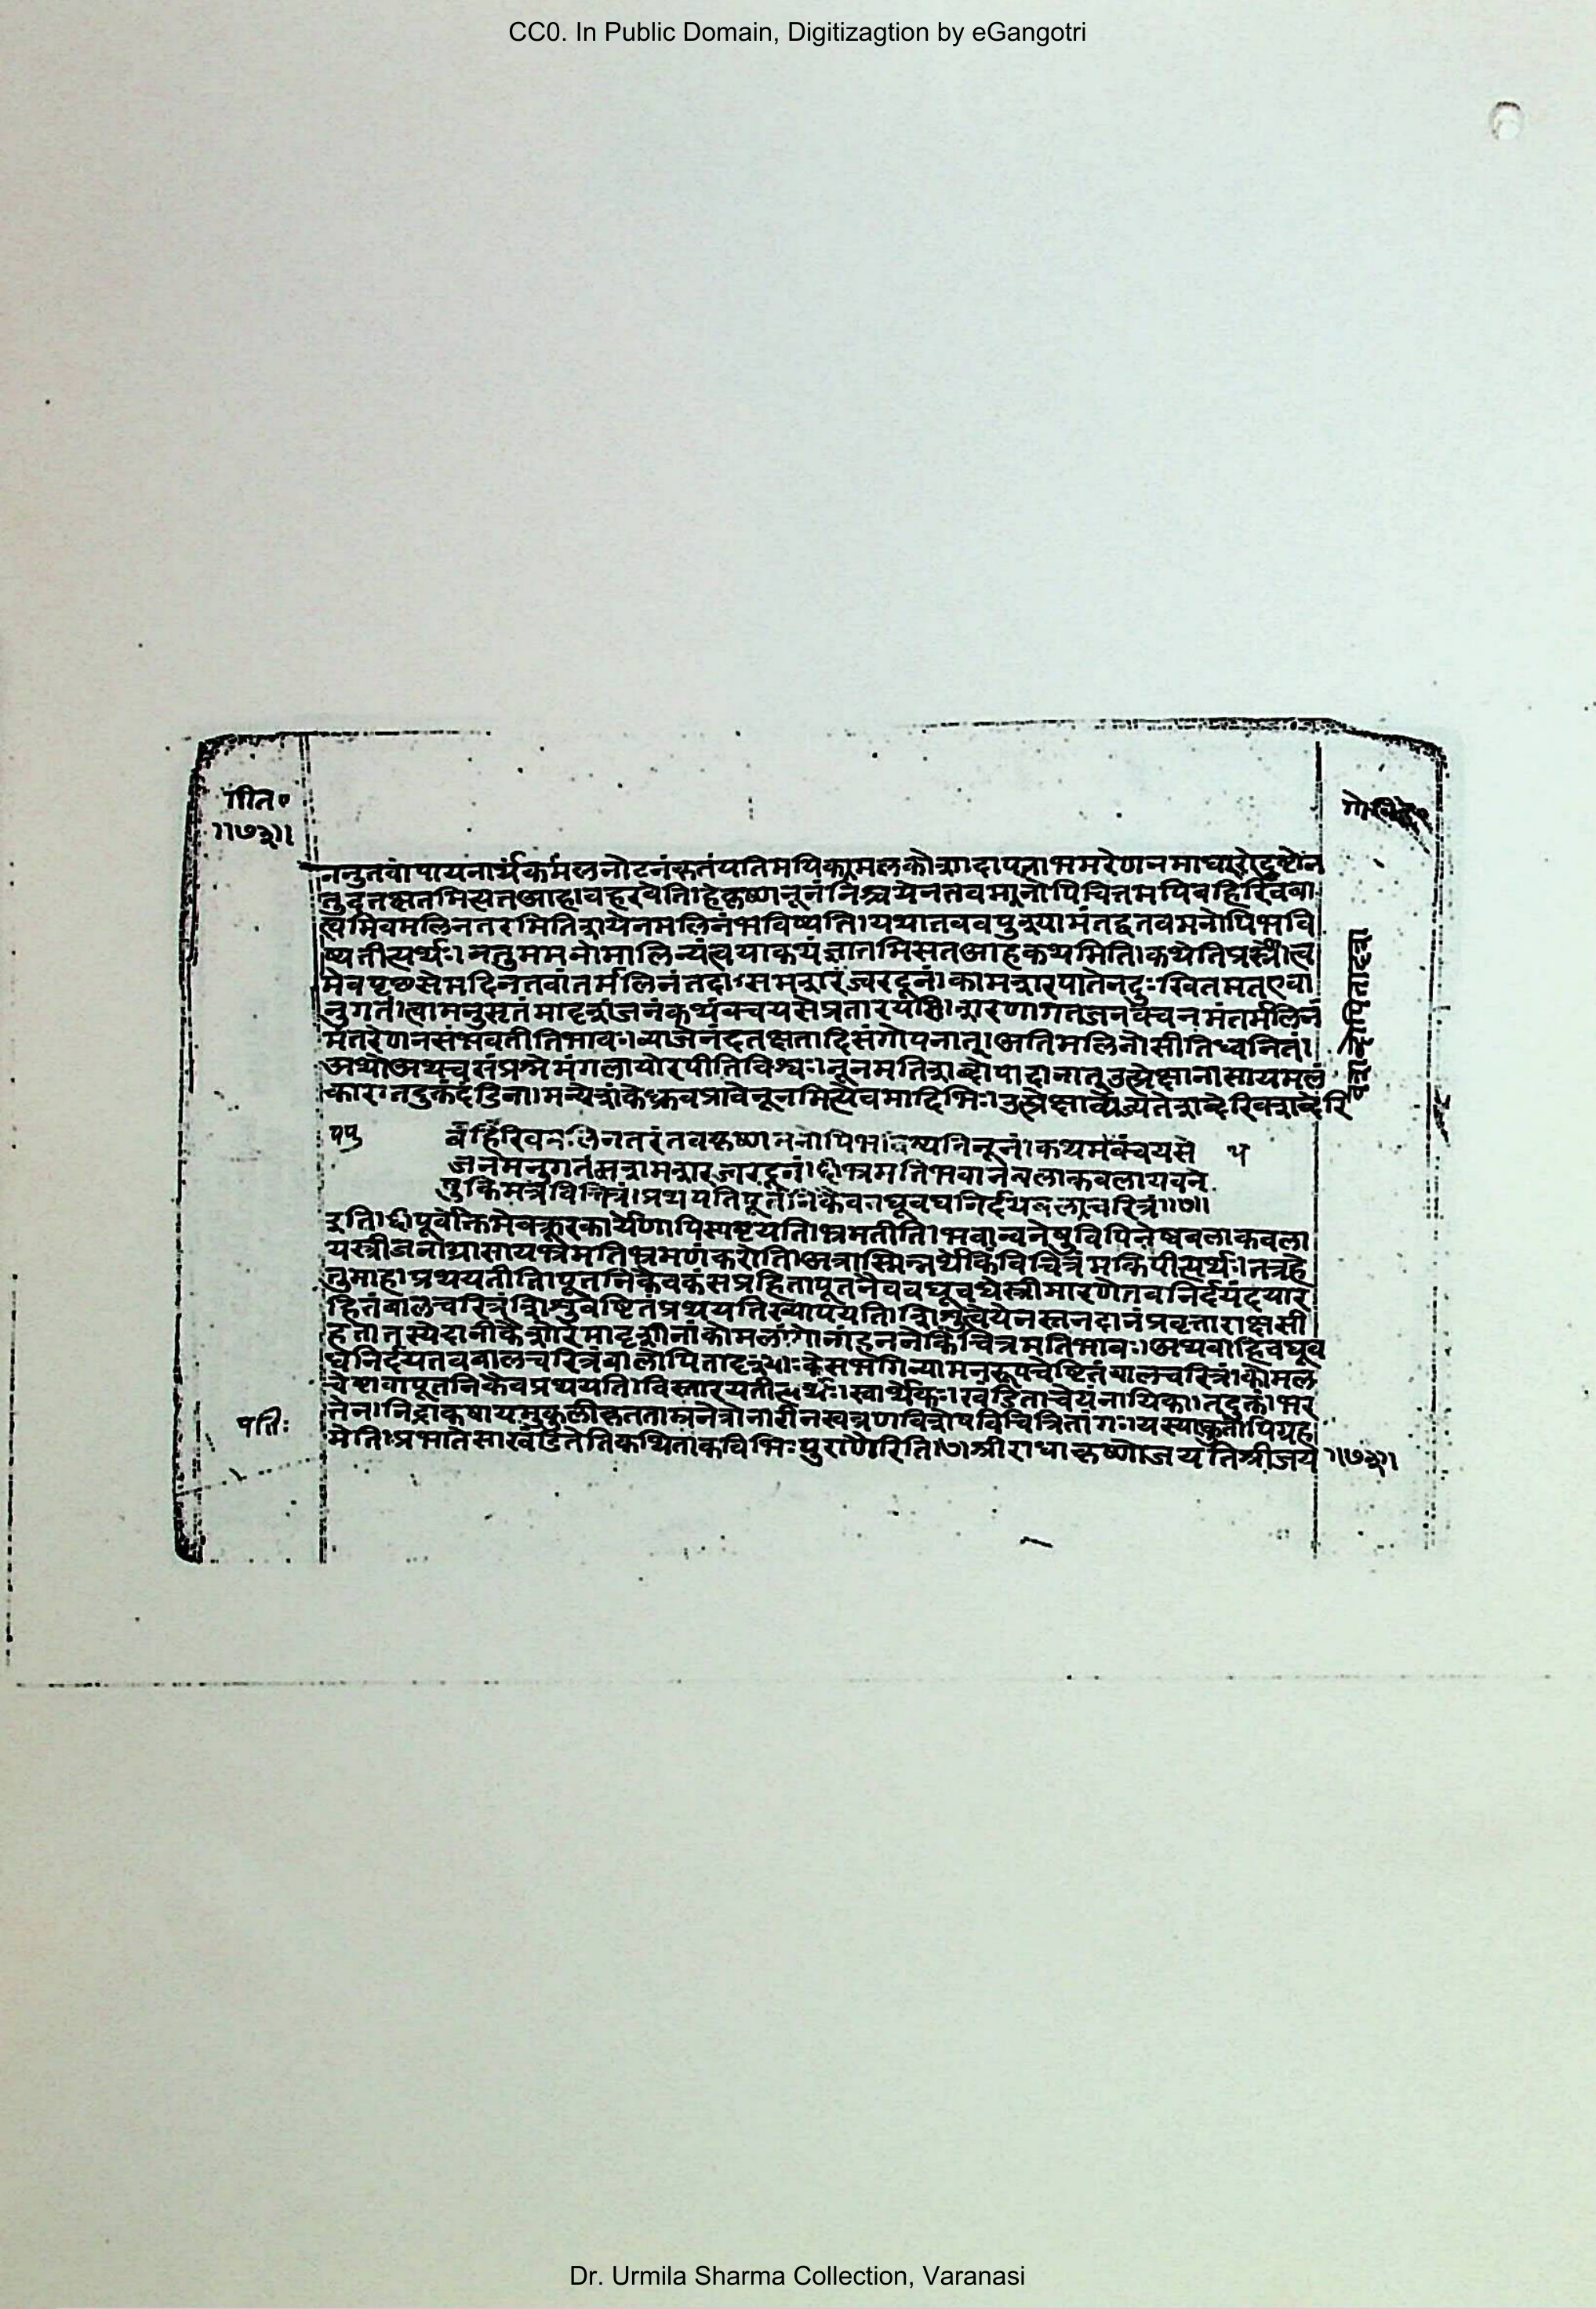 CC0. In Public Domain, Digitizagtion by eGangotri
गीत॰
॥७३॥
ननुतवोपायनार्थकमलनोटनंकृतंयतिमयिकामलकोशादापतताभ्रमरेणनमाधारोदष्टोन
तुदंतक्षतमित्यतआहावहरवेति।हेकृष्णनूनंनिश्चयेनतवमानोपिचित्तमपिबहिरिवबा
त्वमिवमलिनतरमितिशयेनमलिनंभविष्यति।यथातववपुश्यामंतद्वतवमनोपिभवि
ष्यतीत्यर्थः।नतुममनोमालिन्यंत्वयाकथंज्ञातमित्यतआहकथमिति।कथेतिप्रश्ने।त्व
मेवपृछसेमदिनतवांतर्मलिनंतदा।समशरंज्वरदूनं।कामशरपातेनदुःखितमतएवा
नुगतं।त्वामनुसृतंमादृशंजनंकथंवंचयसेप्रतारयसि।शरणागतजनवंचनमंतर्मलिनं
मंतरेणनसंभवतीतिभावः।व्याजेनंदतक्षतादिसंगोपनात्।अतिमलिनोसीतिध्वनितं।
अथोअथचसंप्रश्नेमंगलायोरपीतिविश्वः।नूनमतिशब्दोपादानात्उत्प्रेक्षानासायमलं
कारः।तदुक्तंदंडिना।मन्येशंकेध्रुवंप्रायेनूनमित्येवमादिभिः।उत्प्रेक्षाव्यज्यतेशब्दैरिवशब्दैरि
बहिरिवमलिनतरंतवकृष्णमनोपिभविष्यतिनूनं।कथमथवंचयसे
जनमनुगतमसमशरज्वरदूनं।ही॰भ्रमतिभवानबलाकवलायवने
षुकिमत्रविचित्रं।प्रथयतिपूतनिकैववधूवधनिर्दयबालचरित्रं॥७॥
इति।ही॰पूर्वोक्तमेवक्रूरकार्येणापिस्पष्टयति।भ्रमतीति।भवान्वनेषुविपिनेष्वबलाकवला
यस्त्रीजनग्रासायभ्रमतिभ्रमणंकरोति।अत्रास्मिन्नर्थेकिंविचित्रंमकिपीत्यर्थः।तत्रहे
तुमाह।प्रथयतीति।पूतनिकैवकंसप्रहितापूतनैववधूवधेस्त्रीमारणेतवनिर्दयंदयार
हितंबालचरित्रंशिशुचेष्टितंप्रथयतिख्यापयति।शिशुत्वेयेनस्तनदानंप्रवृत्ताराक्षसी
हतातस्येदानींकैशोरेमादृशीनांकोमलांगीनांहननेकिंचित्रमतिभावः।अथवाहिवधूव
धेनिर्दयतवबालचरित्रंबालोपितादृश्याःकंसभगिन्यामनुरूपचेष्टितंबालचरित्रं।कोमल
चेष्टावापूतनिकैवप्रथयति।विस्तारयतीत्यर्थः।स्वार्थेकः।खंडिताचेयंनायिका।तदुक्तं।भर
तेन।निद्राकषायमुकुलीकृतताम्रनेत्रोनारीनखव्रणविशेषविचित्रितांगः।यस्याःकुतोपिगृह
मेतिप्रभातेसाखंडितेतिकथिताकविभिःपुराणैरिति।७।श्रीराधाकृष्णोजयतिश्रीजय ॥७३॥
Dr. Urmila Sharma Collection, Varanasi